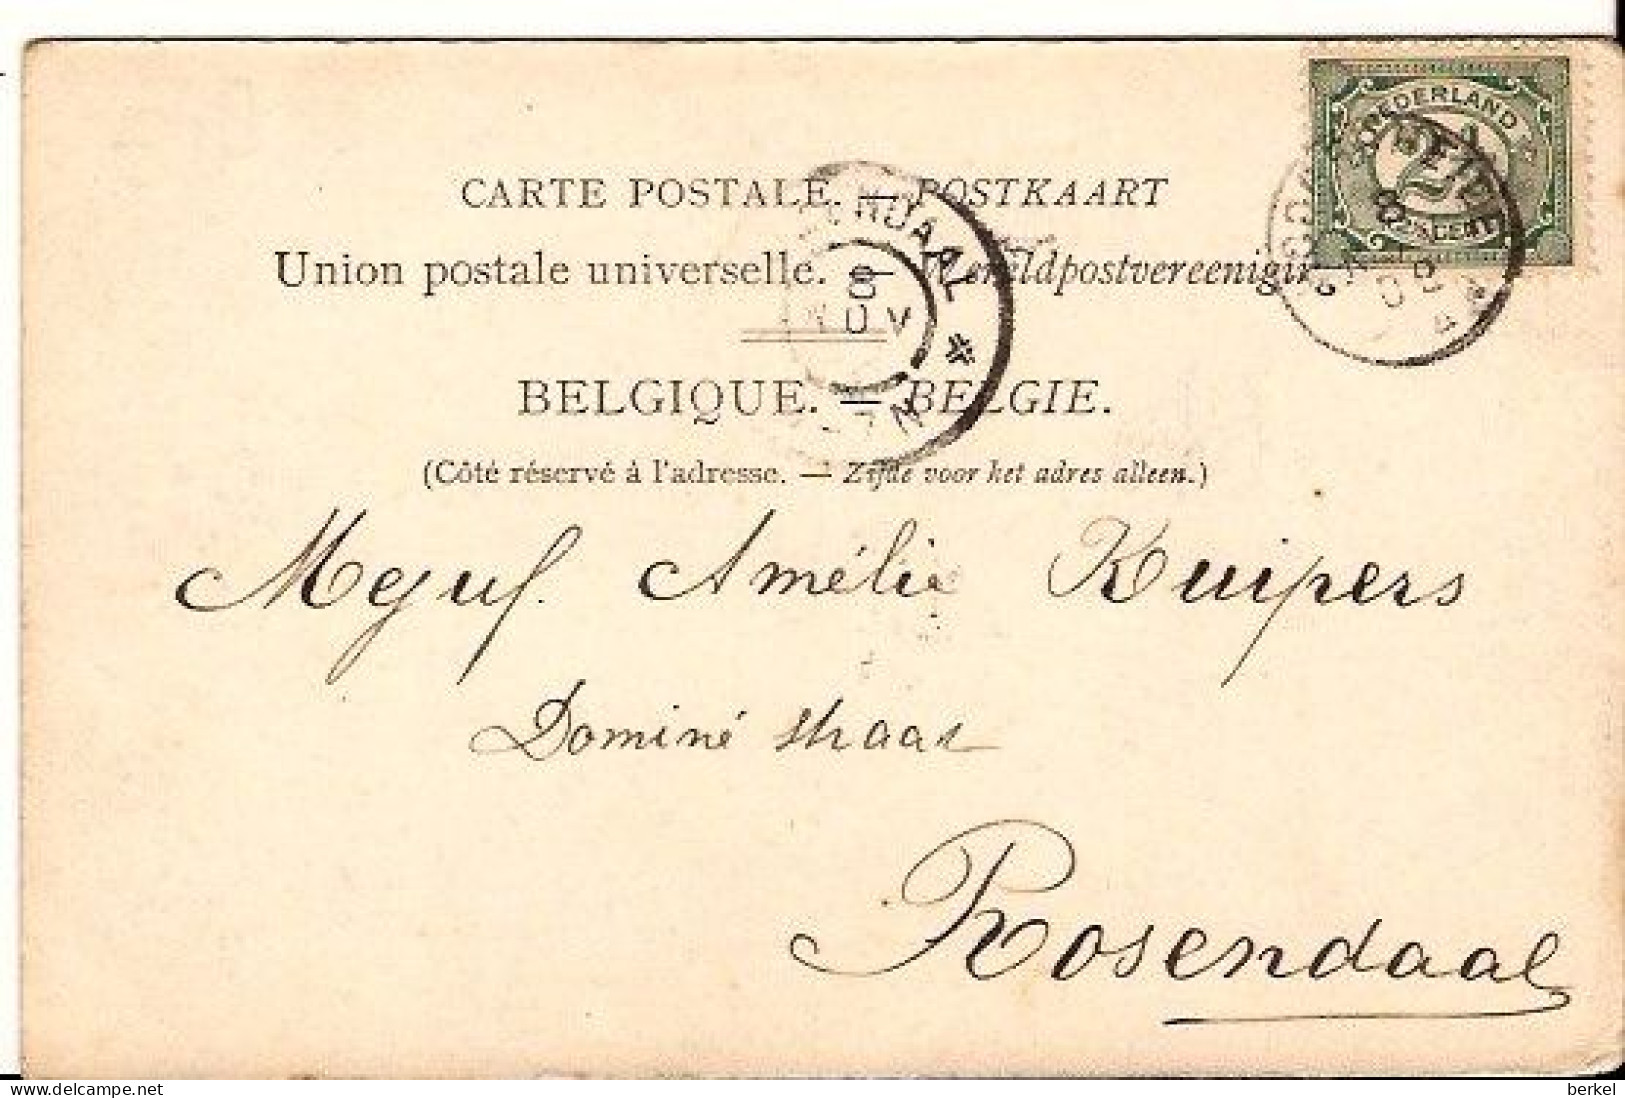 CARTE POSTALE. — POSTKAART
Union postale universelle. — Wereldpostvereeniging
BELGIQUE. — BELGIE.
(Côté réservé à l'adresse. — Zijde voor het adres alleen.)
NEDERLAND
CENT
8
NOV
Mejuf. Amélie Kuipers
Dominé straat
Rosendaal
www.delcampe.net
berkel